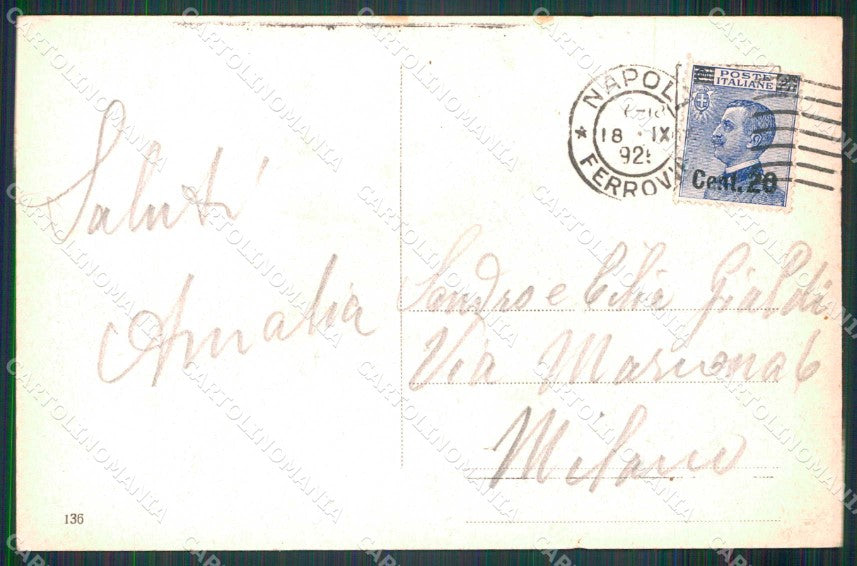 Saluti
Amalia
NAPOLI
18 IX
FERROVIA
POSTE
ITALIANE
Cent. 20
Sandro e Gialdi
Via Marcona 6
Milano
136
CARTOLINOMANIA